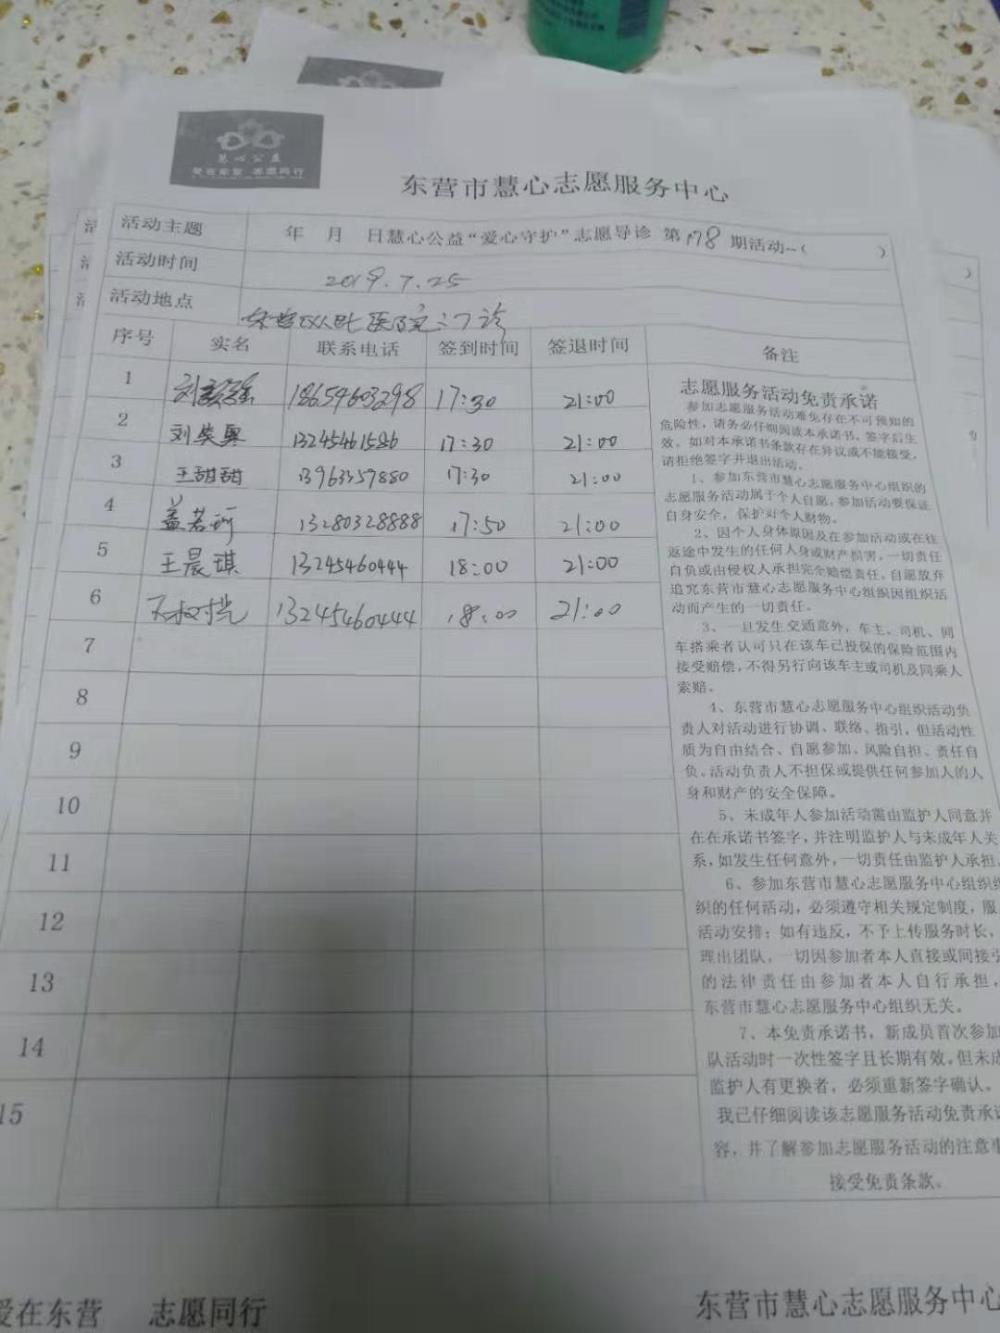 慧心公益
爱在东营 志愿同行
东营市慧心志愿服务中心
活动主题 年 月 日慧心公益“爱心守护”志愿导诊 第178期活动--( )
活动时间 2019.7.25
活动地点 医院门诊
序号 实名 联系电话 签到时间 签退时间 备注
1 18654603298 17:30 21:00
2 17:30 21:00
3 王甜甜 13963357880 17:30 21:00
4 盖若珂 13280328888 17:50 21:00
5 王晨琪 13245460444 18:00 21:00
6 13245460444 18:00 21:00
7
8
9
10
11
12
13
14
15
志愿服务活动免责承诺
参加志愿服务活动难免存在不可预知的
危险性，请务必仔细阅读本承诺书，签字后生
效。如对本承诺书条款存在异议或不能接受，
请拒绝签字并退出活动。
1、参加东营市慧心志愿服务中心组织的
志愿服务活动属于个人自愿，参加活动要保证
自身安全，保护好个人财物。
2、因个人身体原因及在参加活动或在往
返途中发生的任何人身或财产损害，一切责任
自负或由侵权人承担完全赔偿责任，自愿放弃
追究东营市慧心志愿服务中心组织因组织活
动而产生的一切责任。
3、一旦发生交通意外，车主、司机、同
车搭乘者认可只在该车已投保的保险范围内
接受赔偿，不得另行向该车主或司机及同乘人
索赔。
4、东营市慧心志愿服务中心组织活动负
责人对活动进行协调、联络、指引，但活动性
质为自由结合、自愿参加、风险自担、责任自
负。活动负责人不担保或提供任何参加人的人
身和财产的安全保障。
5、未成年人参加活动需由监护人同意并
在在承诺书签字，并注明监护人与未成年人关
系，如发生任何意外，一切责任由监护人承担。
6、参加东营市慧心志愿服务中心组织组
织的任何活动，必须遵守相关规定制度，服
活动安排；如有违反，不予上传服务时长，
理出团队，一切因参加者本人直接或间接引
的法律责任由参加者本人自行承担，
东营市慧心志愿服务中心组织无关。
7、本免责承诺书，新成员首次参加
队活动时一次性签字且长期有效，但未成
监护人有更换者，必须重新签字确认。
我已仔细阅读该志愿服务活动免责承诺
容，并了解参加志愿服务活动的注意事
接受免责条款。
爱在东营 志愿同行
东营市慧心志愿服务中心